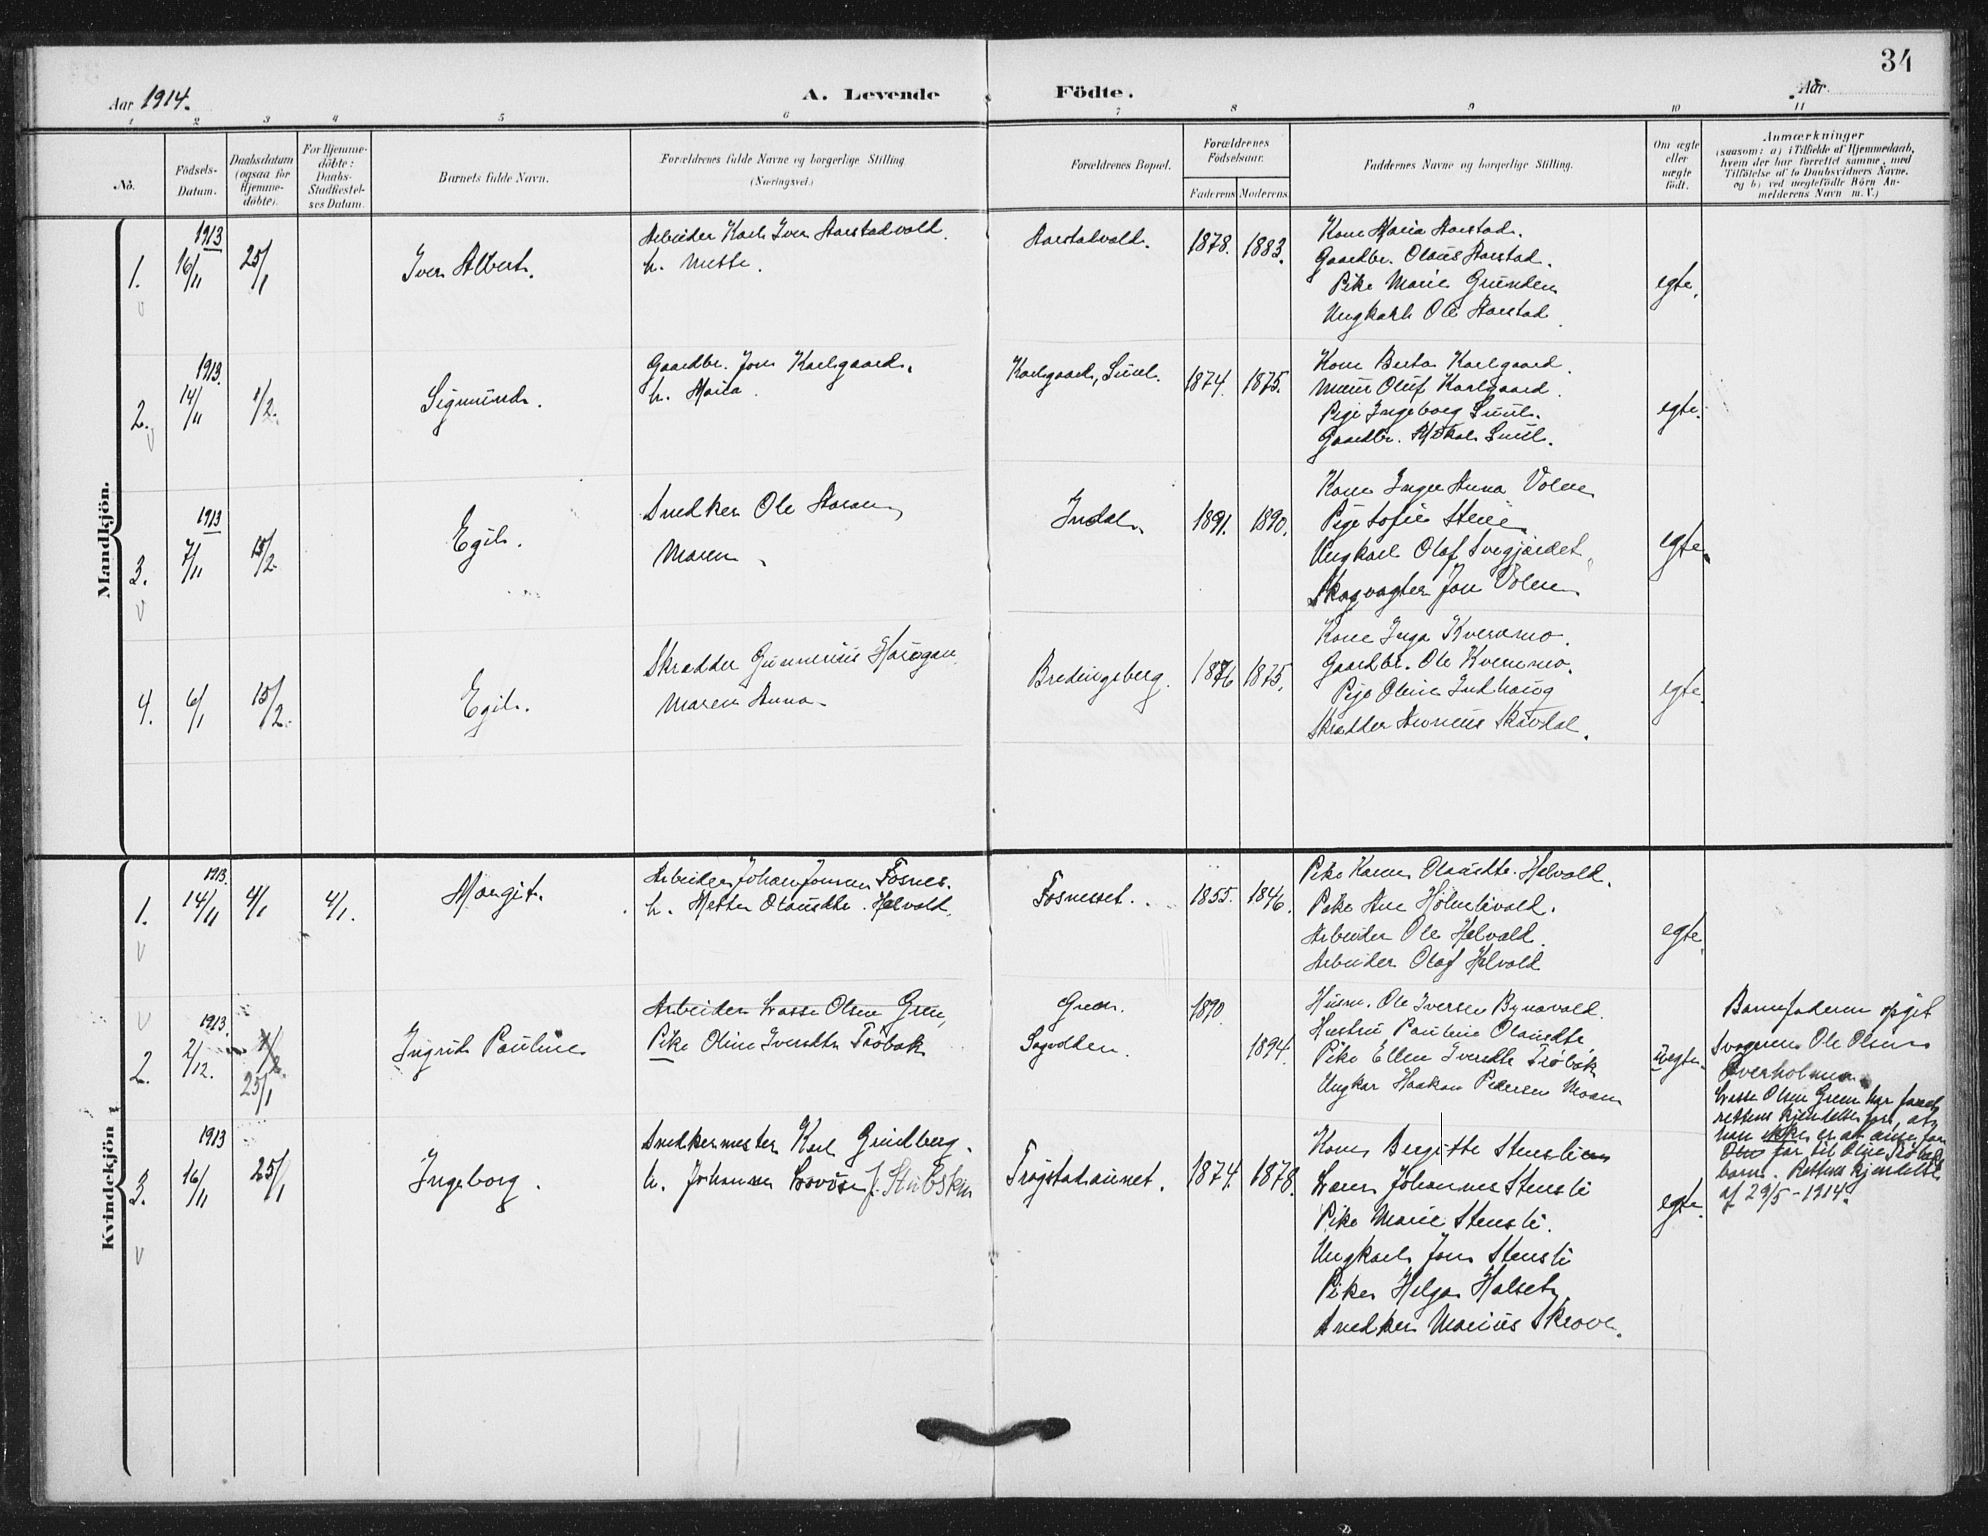 34
Aar 1914.
A. Levende Födte.
Aar
1 2 3 4 5 6 7 8 9 10 11
No.
Födsels-
Datum.
Daabsdatum
(ogsaa for
Hjemme-
döbte).
For Hjemme-
döbte:
Daabs-
Stadfæstel-
ses Datum.
Barnets fulde Navn.
Forældrenes fulde Navne og borgerlige Stilling
(Næringsvei.)
Forældrenes Bopæl.
Forældrenes
Födselsaar.
Faderens Moderens
Faddernes Navne og borgerlige Stilling.
Om ægte
eller
uægte
födt.
Anmærkninger
(saasom: a) i Tilfælde af Hjemmedaab,
hvem der har forrettet samme, med
Tilföielse af to Daabsvidners Navne.
og b) ved uægtefödte Börn An-
melderens Navn m. V.)
Mandkjön.
1.
1913
16/11
25/1
Iver Albert.
Arbeider Karl Iver Aarstadvold.
h. Mette.
Aarstadvold.
1878. 1883.
Kone Maria Aarstad.
Gaardbr. Olaus Aarstad.
Pike Marie Grunden
Ungkarl Ole Aarstad
egte.
2.
1913.
14/11
1/2.
Sigmund.
Gaardbr. Jon Karlgaard.
h. Maria.
Karlgaard, Suul.
1874. 1875.
Kone Berta Karlgaard.
Oluf Karlgaard.
Pige Ingeborg Suul.
Gaardbr. Mikal Suul.
egte.
3.
1913
7/11
15/2.
Egil.
Snedker Ole
Maren
Indal.
1891. 1890.
Kone Inger Anna Volen
Pige Sofie Stene
Ungkarl Olaf Svegjærdet
Skogvagter Jon Volen
egte.
4.
6/1
15/2.
Egil.
Skrædder Gunnerius
Maren Anna
Bredingsberg.
1876 1875.
Kone Inga Kvernmo.
Gaardbr. Ole Kvernmo.
Pige Oline Indhaug
Skrædder Skavdal.
egte.
Kvindekjön
1.
1913.
14/11
4/1
4/1.
Margit.
Arbeider Johan Jonsen Fosnes.
h. Mette Olausdtr. Helvold.
Fosnesset.
1855. 1846.
Pike Karen Olausdtr. Helvold.
Pike Ane Holmlivold.
Arbeider Ole Helvold.
Arbeider Olaf Helvold
egte.
2.
1913.
2/12.
1/2
25/1
Ingrid Pauline
Arbeider Lasse Olsen Green,
Pike Oline Iversdtr. Trøbak
Green.
Sagvolden.
1890.
1894.
Husm. Ole Iversen Bynavold.
Hustru Pauline Olausdtr
Pike Ellen Iversdtr Trøbak
Ungkar Haakon Pedersen Moan
uegte.
Barnefaderen opgit
Svogeren Ole Olsen
Overholmen.
Lasse Olsen Green har faaet
rettens kjendelse for, at
han ikke er at anse for
far til Oline Trøbaks
barn. Rettens kjendelse
af 29/5-1914.
3.
1913
16/11
25/1
Ingeborg.
Snedkermester Karl Grindberg.
h. Johanna Lovise J. Stubskin
Trøgstadaunet.
1874. 1878.
Kone Bergitte Stenslien
Johannes Stensli
Pike Marie Stensli.
Ungkarl Jon Stensli
Pike Helga Halset
Snedker Marius Skrove.
egte.